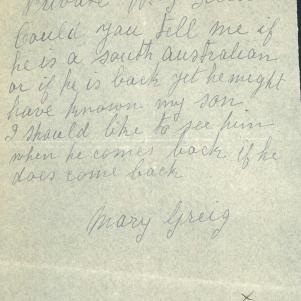 Private W. J
Could you tell me if
he is a south australian
or if he is back yet he might
have known my son
I should like to see him
when he comes back if he
does come back
Mary Greig
x